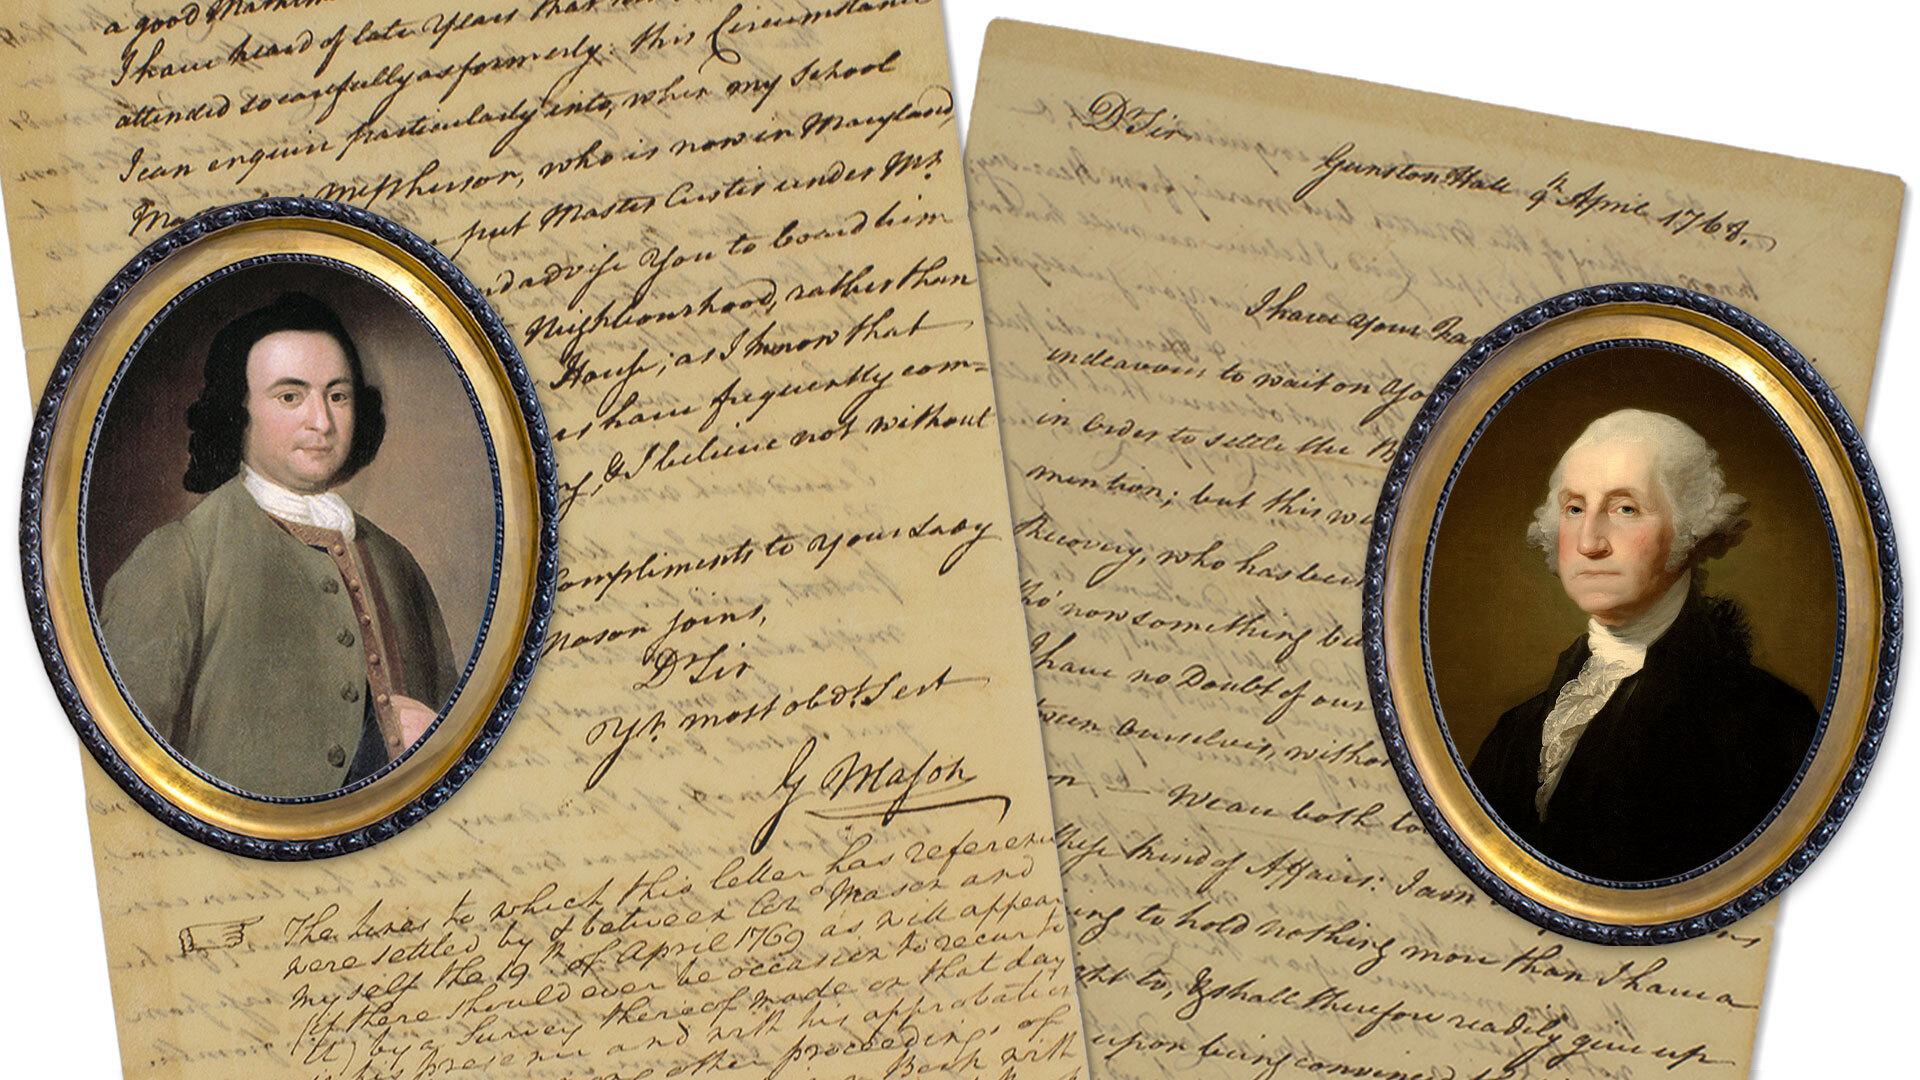 a good
I have heard of late Years that
attended so carefully as formerly: this Circumstance
I can enquire particularly into, when my School
McPherson, who is now in Maryland,
put Master Custis under Mr.
nd advise You to board him
Neighbourhood, rather than
House; as I know that
rs have frequently com=
y, & I believe not without
ompliments to your Lady
Mason joins,
Dr Sir
Yr. most obdt. Sert
G Mason
The lines to which this letter has referen
were settled by & between Colo. Mason and
myself the 19th of April 1769 as will appear
(if there should ever be occasion to recur to
it) by a Survey thereof made on that day
his presence and with his approbation
other proceedings of
with
Dr Sir
Gunston Hall 9th April 1768.
I have Your Fa
endeavour to wait on Yo
in Order to settle the B
mention; but this wi
Recovery, who has been
tho' now something be
I have no Doubt of our
tween Ourselves, witho
n — We are both to
these kind of Affairs: I am
ing to hold nothing more than I have a
ght to, & shall therefore readily give up
upon being convinced